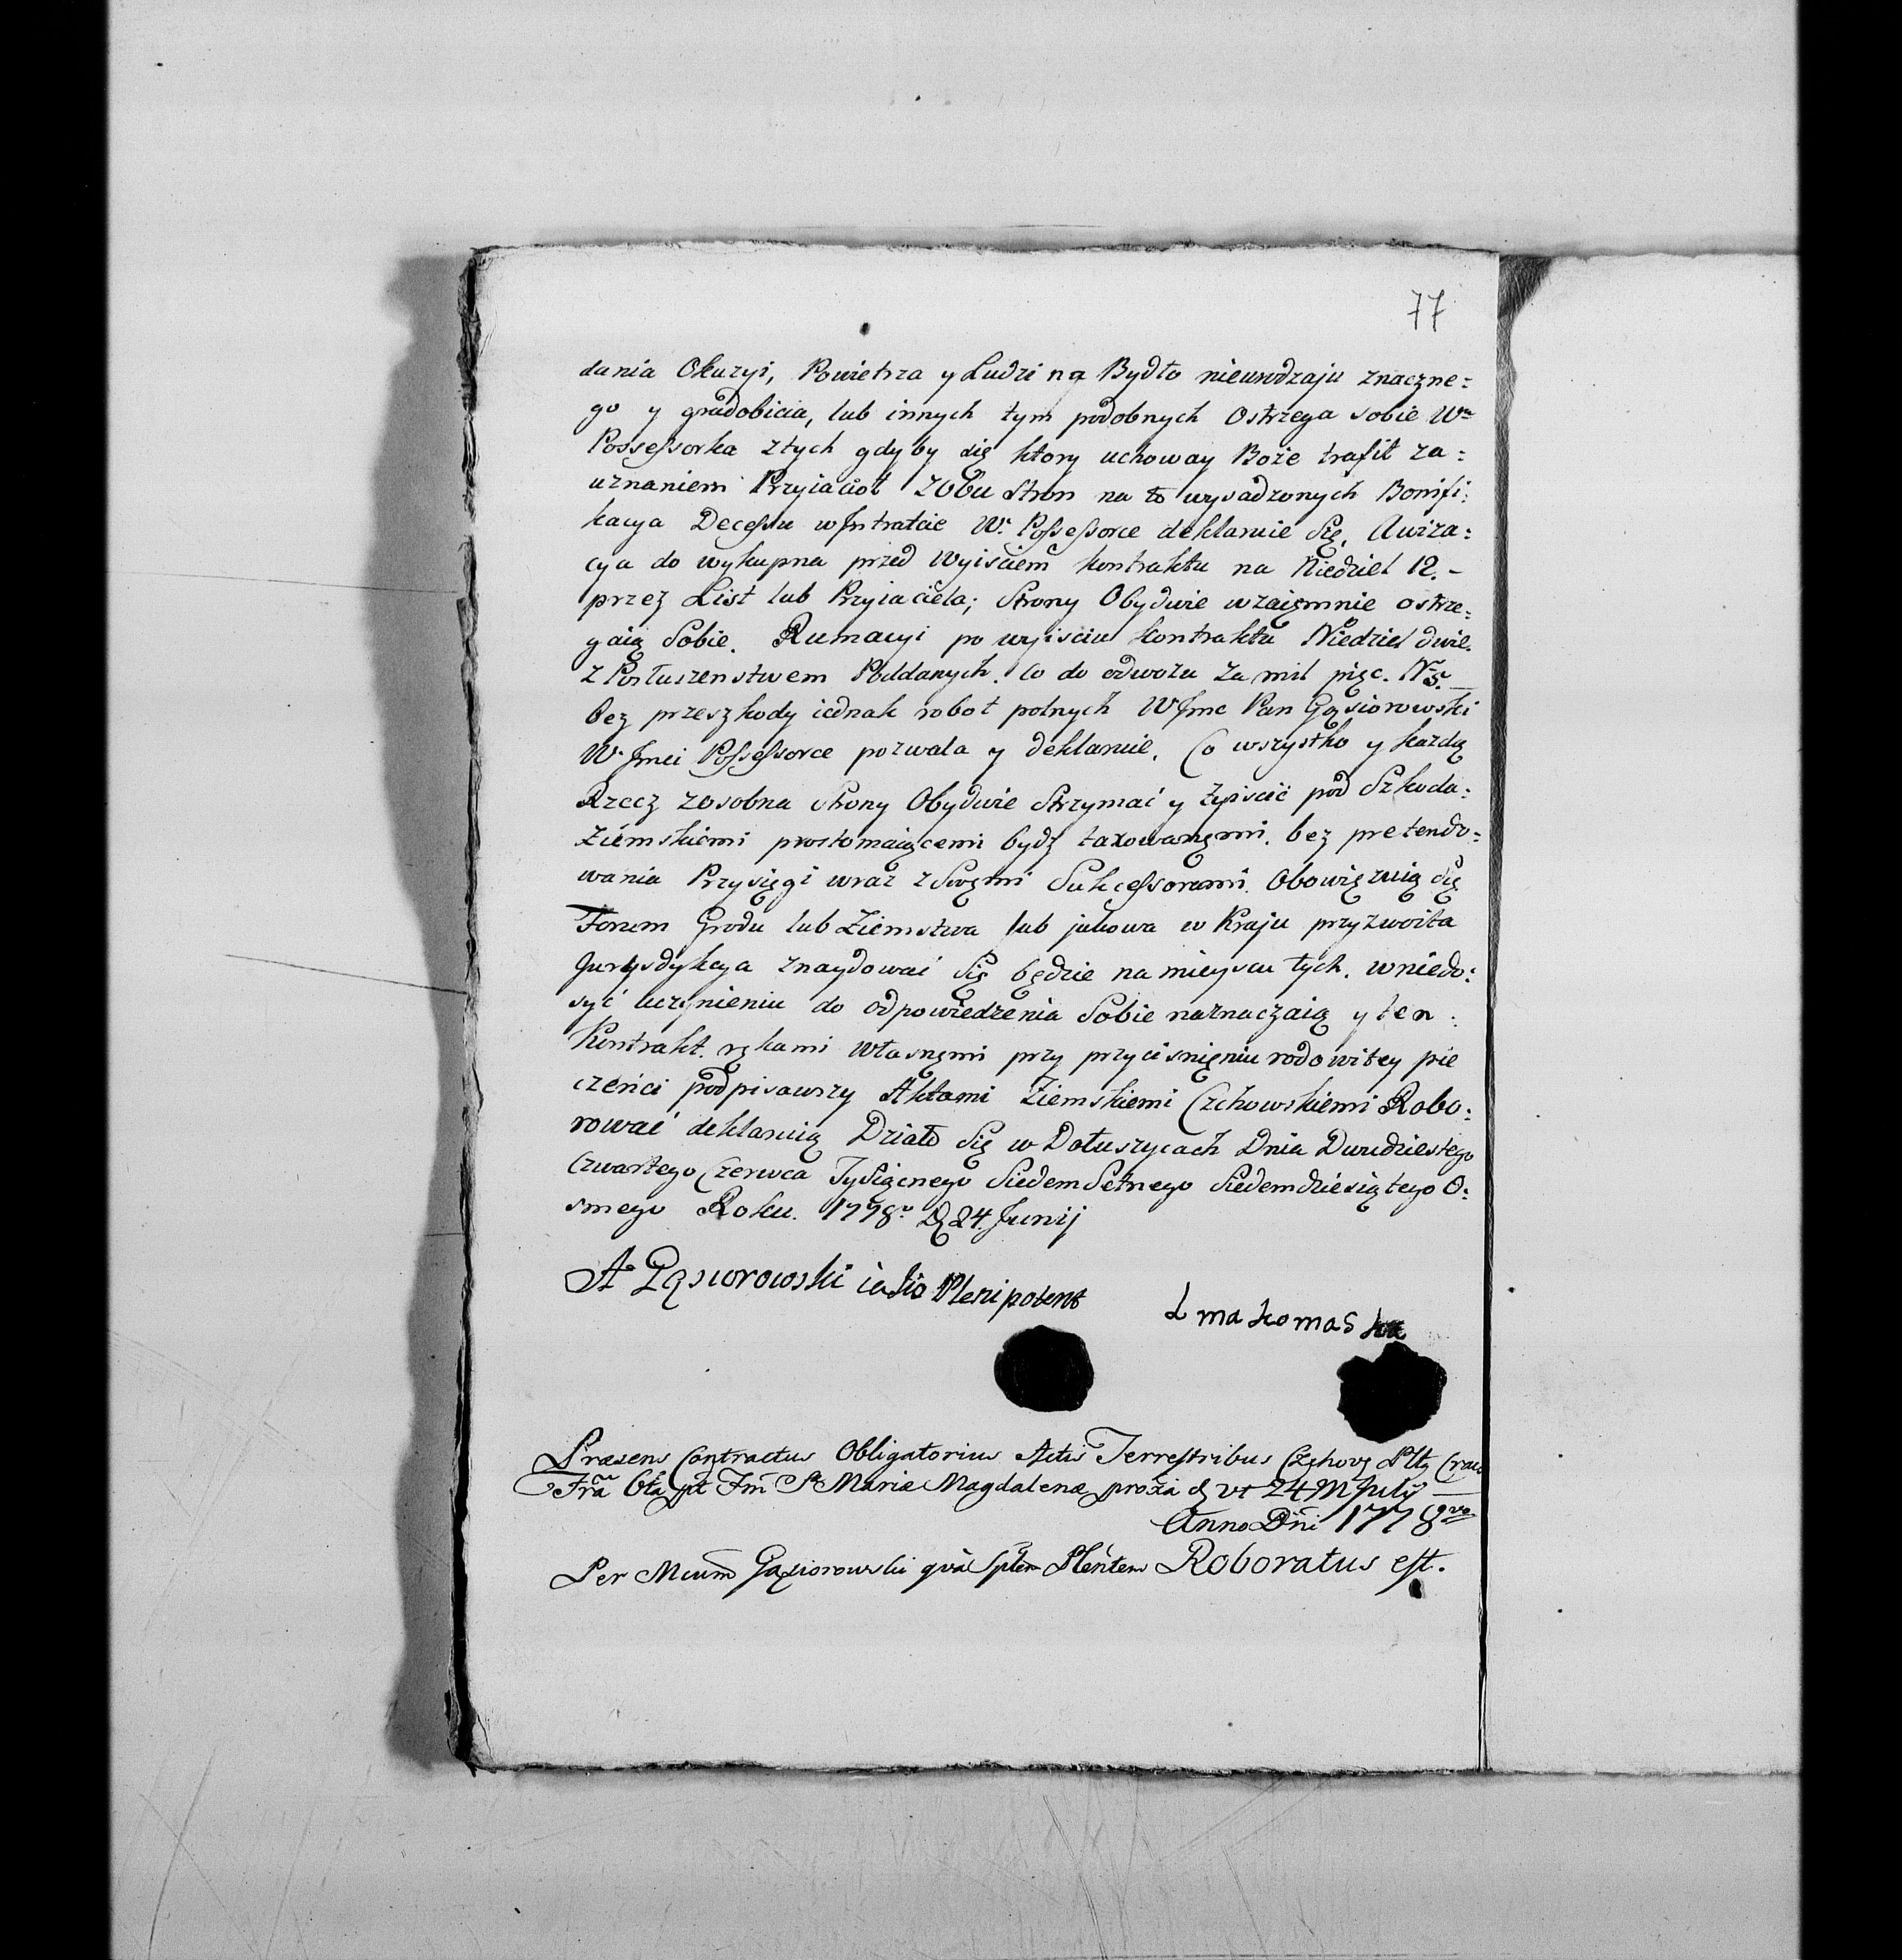 77
dania Okazyi, Powietrza y Ludzi na Bydło nieurodzaju znaczne=
go y gradobicia, lub innych tym podobnych Ostrzega sobie Wa
Possessorka z tych gdyby się ktory uchoway Boże trafił za=
uznaniem Przyiacioł z Obu Stron na to wysadzonych Bonifi:
kacya Decessu w Intratcie W. Possessorce deklaruie Się. Awiza=
cya do wykupna przed Wyisciem kontraktu na Niedziel 12.–
przez List lub Przyiaciela; Strony Obydwie wzaięmnie ostrze=
gaią Sobie. Rumacyi po wyisciu kontraktu Niedziel dwie.
z Posłuszenstwem Poddanych. Co do odwozu za mil pięc. Nr 5.
bez przeszkody iednak robot polnych WJmc Pan Gąsiorowski
W. Jmci Possessorce pozwala y deklaruie. Co wszystko y każdą
Rzecz zosobna strony Obydwie Strzymać y ziścić pod Szkoda=
Ziemskiemi prostomaiącemi bydź taxowanęmi. bez pretendo=
wania Przysięgi wraz z Swęmi Sukcessorami. Obowięzuią się
Forum Grodu lub Ziemstwa lub jakowa w Kraju przyzwoita
Jurysdykcya znaydować Się będzie na mieyscu tych. w niedo=
syć uczynieniu do odpowiedzenia Sobie naznaczaią y ten:
Kontrakt. rękami własnęmi przy przycisnięniu rodowitey pie
częńci podpisawszy Aktami Ziemskiemi Czchowskiemi Robo:
rować deklaruią Działo Się w Dołuszycach Dnia Dwudziestego
Czwartego Czerwca Tysiącnego SiedemSetnego Siedemdziesiątego O:
smego Roku. 1778o D 24. Junij
A Gąsiorowski iako Plenipotent
L makomaska
Præsens Contractus Obligatorius Actis Terrestribus Czchov Pltg Crac
Fra Cta pt Fm S Mariæ Magdalenæ proxa d vt 24 M July
Anno Dni 1778vo
Per Mcum Gąsiorowski qua Splem Plentem Roboratus est.